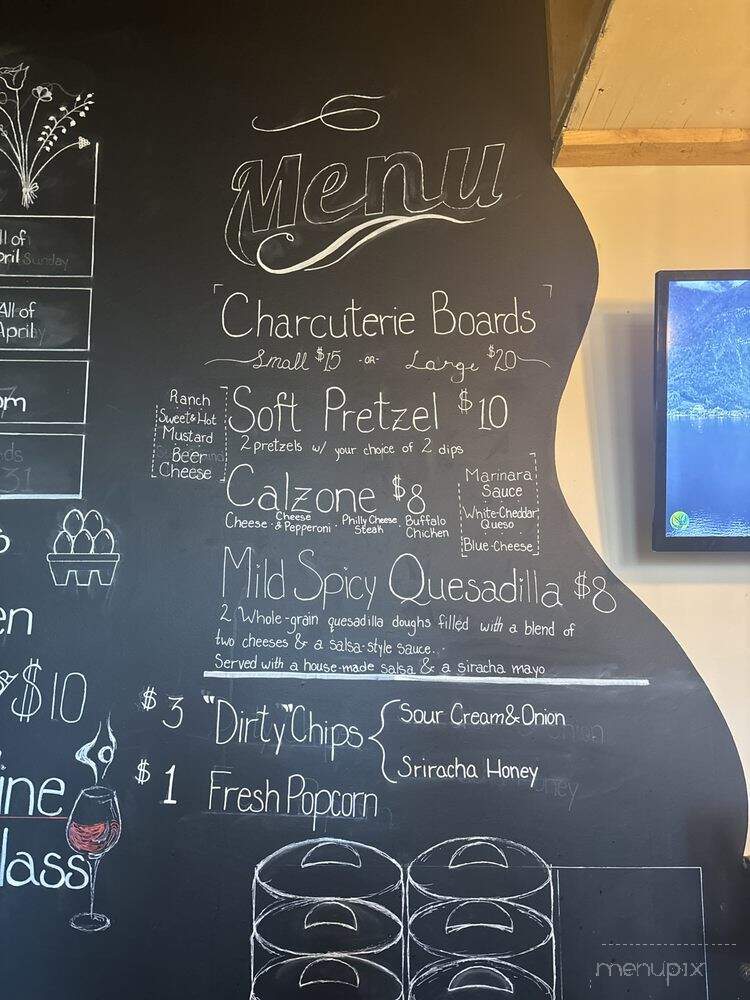 Menu
Charcuterie Boards
Small $15 -OR- Large $20
Ranch
Sweet & Hot
Mustard
Beer
Cheese
Soft Pretzel $10
2 pretzels w/ your choice of 2 dips
Calzone $8
Cheese · Cheese & Pepperoni · Philly Cheese Steak · Buffalo Chicken
Marinara
Sauce
White-Cheddar
Queso
Blue-Cheese
Mild Spicy Quesadilla $8
2 Whole-grain quesadilla doughs filled with a blend of
two cheeses & a salsa-style sauce...
Served with a house-made salsa & a siracha mayo
$3 "Dirty" Chips
Sour Cream & Onion
Sriracha Honey
$1 Fresh Popcorn
ll of
pril Sunday
All of
April
om
ds
31
en
$10
ine
lass
menupix